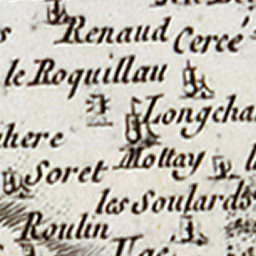 Renaud Cercé
le Roquillau
Longcha
here
Mottay
Soret
les Soulards
Roulin